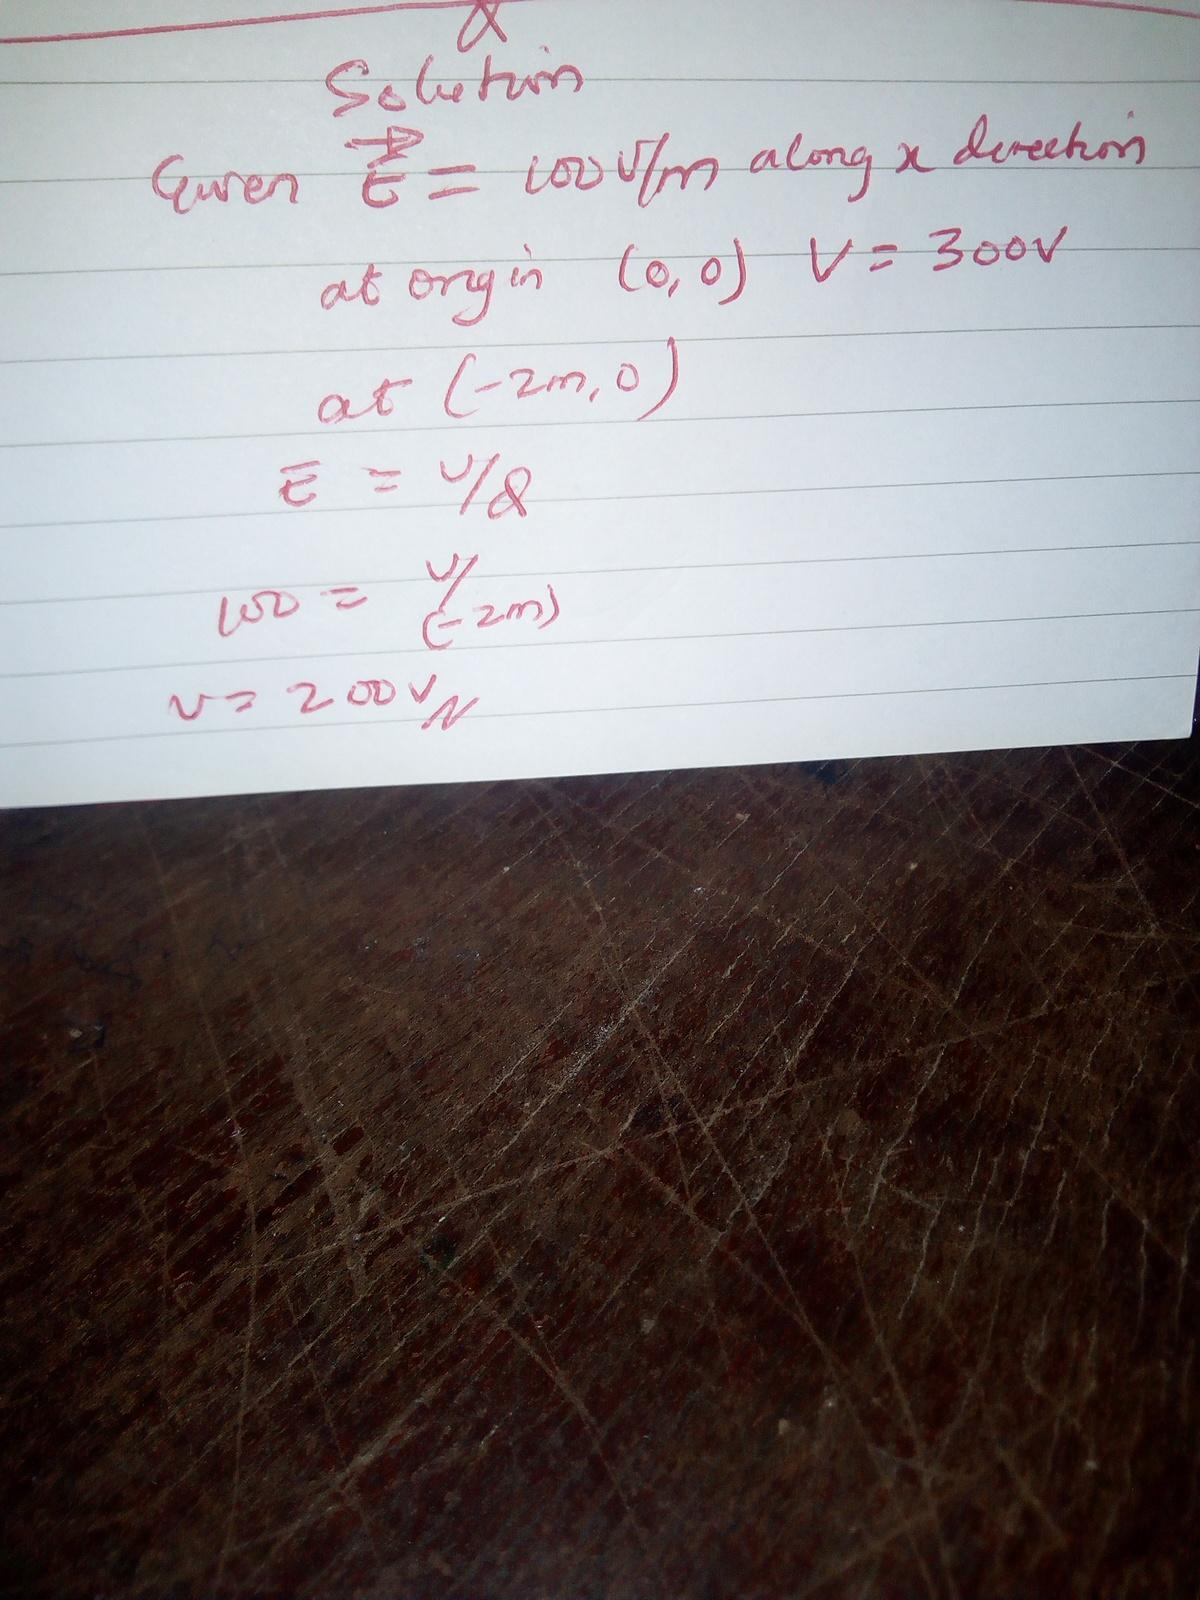 Solution
Given E = 100V/m along x direction
at origin (0,0) V = 300V
at (-2m, 0)
E = V/
100 = V/(-2m)
V = 200V